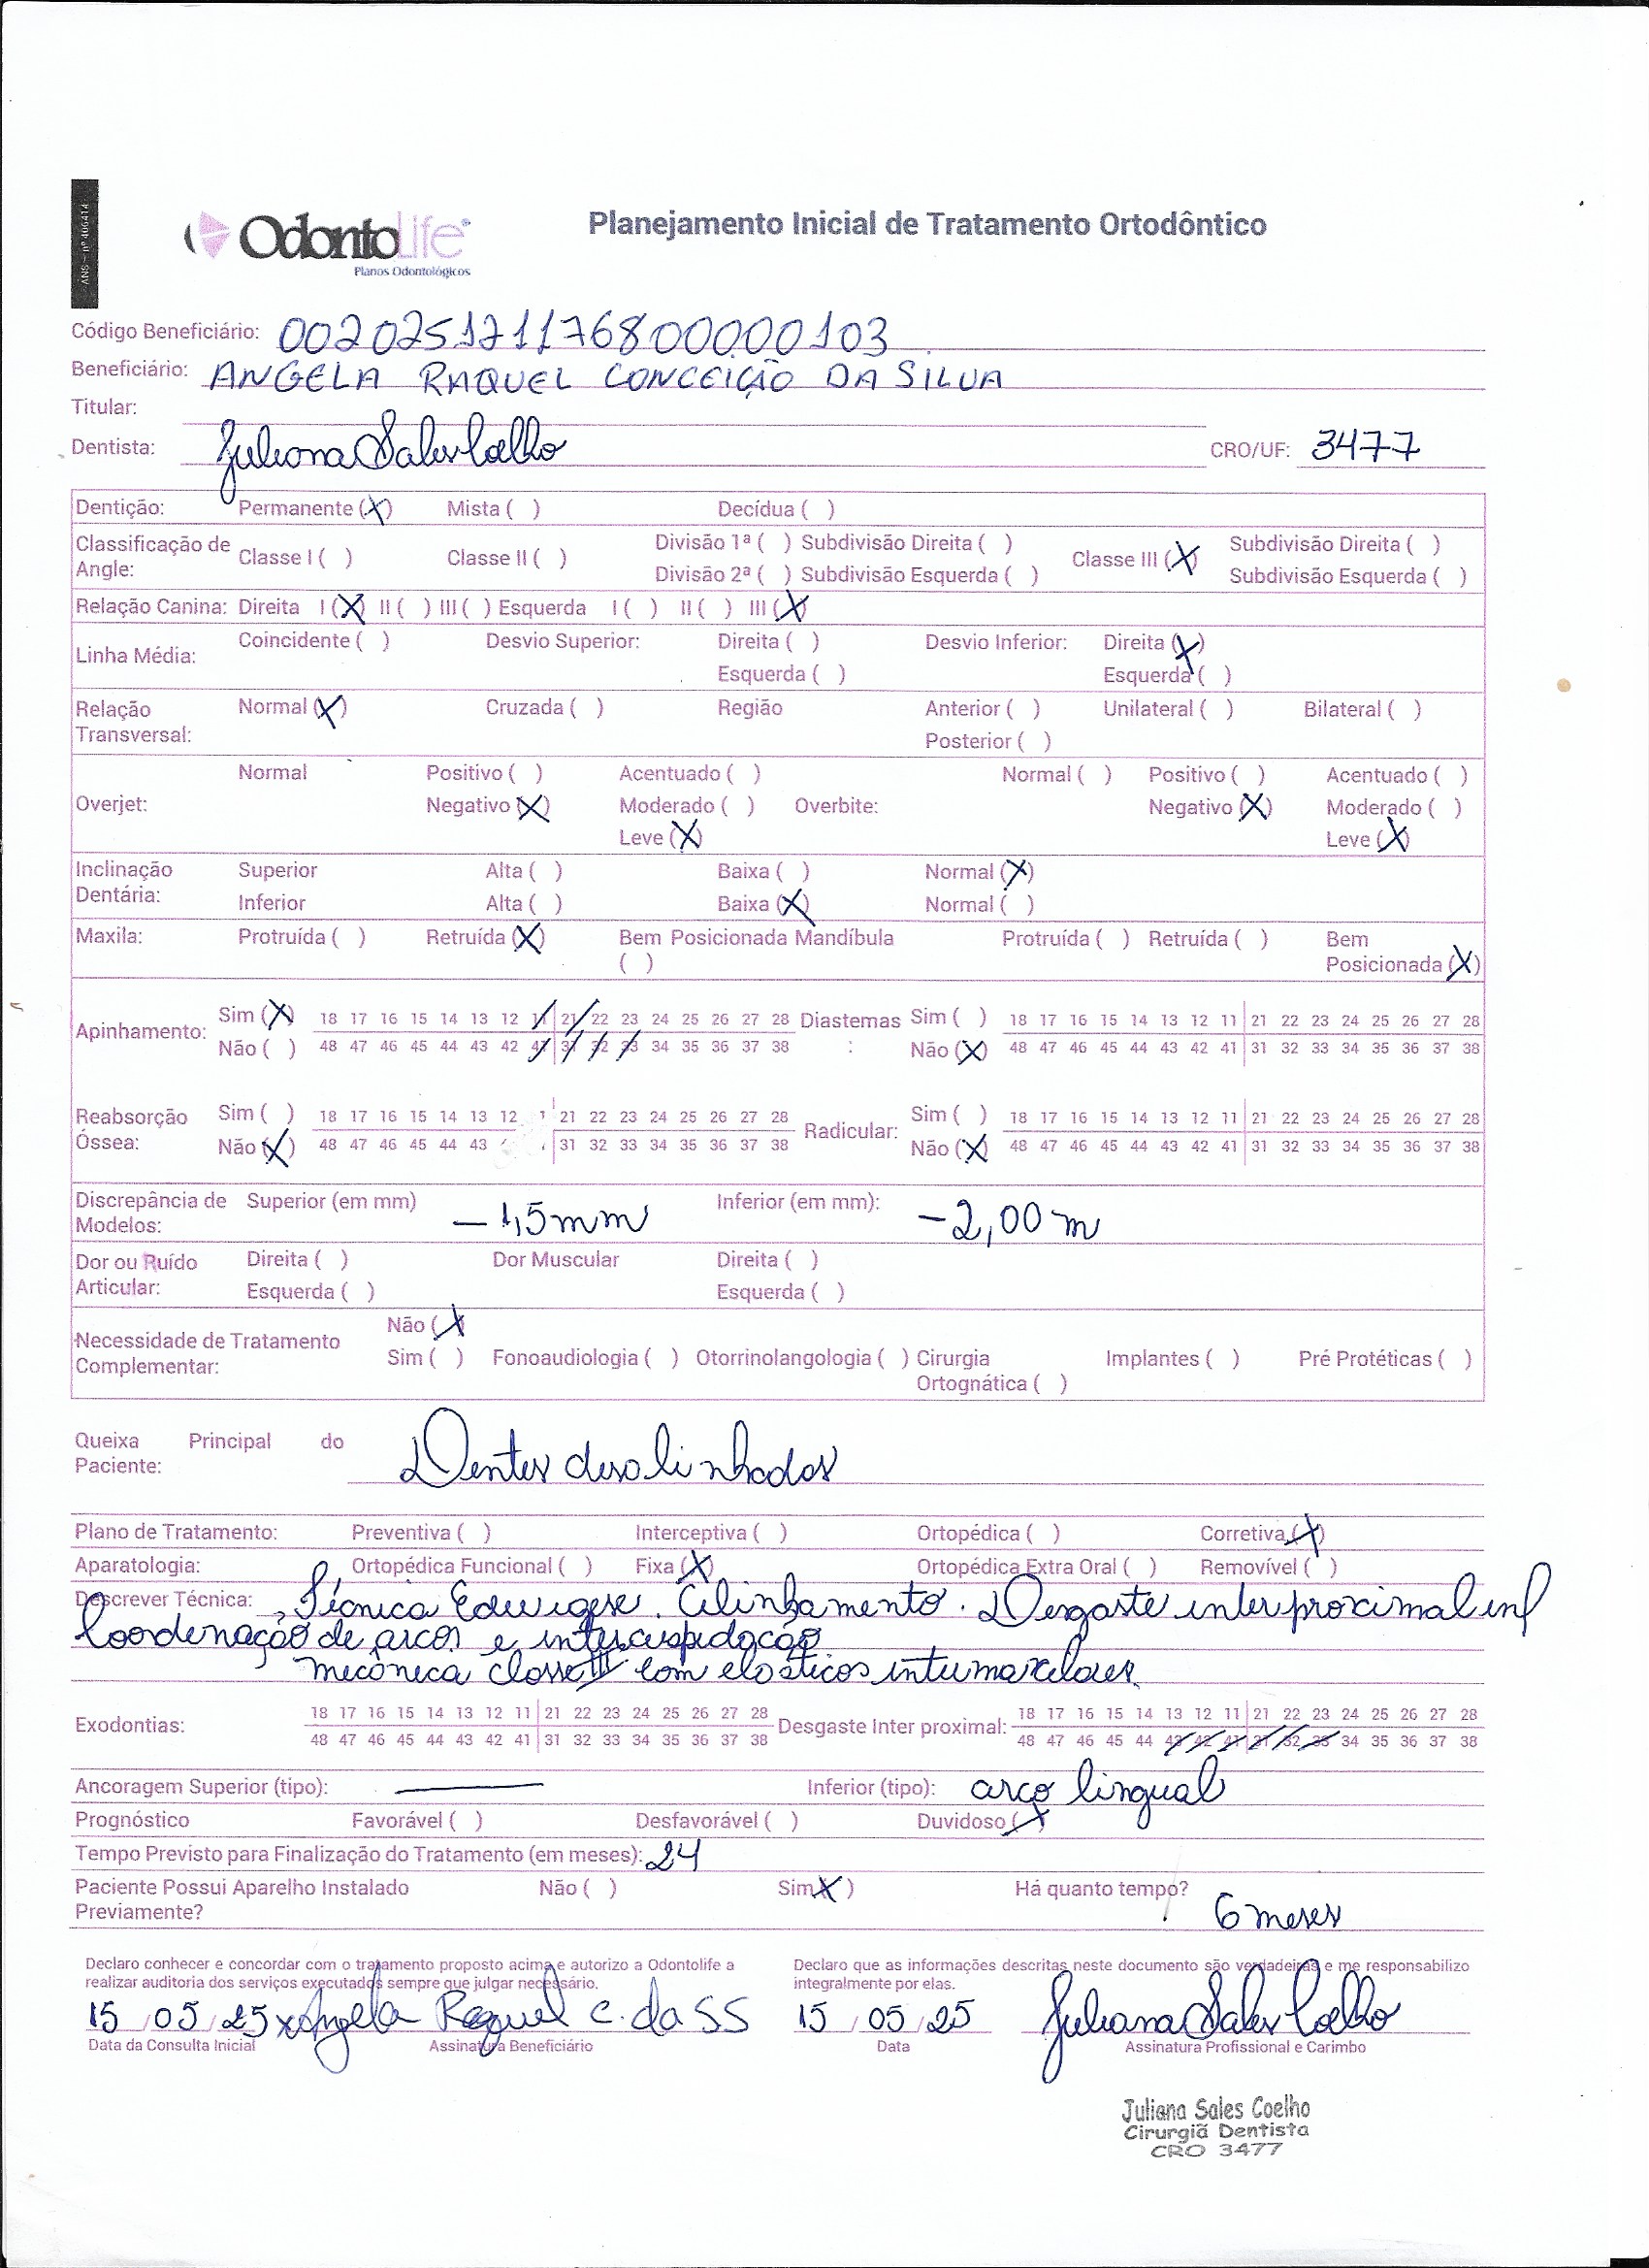 ANS - nº 406414
OdontoLife
Planos Odontológicos
Planejamento Inicial de Tratamento Ortodôntico
Código Beneficiário: 0020251211176800000103
Beneficiário: ANGELA RAQUEL CONCEIÇÃO DA SILVA
Titular:
Dentista: Juliana Sales Coelho CRO/UF: 3477
Dentição: Permanente (X) Mista ( ) Decídua ( )
Classificação de Angle: Classe I ( ) Classe II ( ) Divisão 1ª ( ) Subdivisão Direita ( ) Classe III (X) Subdivisão Direita ( )
Divisão 2ª ( ) Subdivisão Esquerda ( ) Subdivisão Esquerda ( )
Relação Canina: Direita I (X) II ( ) III ( ) Esquerda I ( ) II ( ) III (X)
Linha Média: Coincidente ( ) Desvio Superior: Direita ( ) Desvio Inferior: Direita (X)
Esquerda ( ) Esquerda ( )
Relação Transversal: Normal (X) Cruzada ( ) Região Anterior ( ) Unilateral ( ) Bilateral ( )
Posterior ( )
Normal Positivo ( ) Acentuado ( ) Normal ( ) Positivo ( ) Acentuado ( )
Overjet: Negativo (X) Moderado ( ) Overbite: Negativo (X) Moderado ( )
Leve (X) Leve (X)
Inclinação Dentária: Superior Alta ( ) Baixa ( ) Normal (X)
Inferior Alta ( ) Baixa (X) Normal ( )
Maxila: Protruída ( ) Retruída (X) Bem Posicionada ( ) Mandíbula Protruída ( ) Retruída ( ) Bem Posicionada (X)
Apinhamento: Sim (X) 18 17 16 15 14 13 12 11 21 22 23 24 25 26 27 28 Diastemas: Sim ( ) 18 17 16 15 14 13 12 11 21 22 23 24 25 26 27 28
Não ( ) 48 47 46 45 44 43 42 41 31 32 33 34 35 36 37 38 Não (X) 48 47 46 45 44 43 42 41 31 32 33 34 35 36 37 38
Reabsorção Óssea: Sim ( ) 18 17 16 15 14 13 12 1 21 22 23 24 25 26 27 28 Radicular: Sim ( ) 18 17 16 15 14 13 12 11 21 22 23 24 25 26 27 28
Não (X) 48 47 46 45 44 43 31 32 33 34 35 36 37 38 Não (X) 48 47 46 45 44 43 42 41 31 32 33 34 35 36 37 38
Discrepância de Modelos: Superior (em mm) -1,5mm Inferior (em mm): -2,00 m
Dor ou Ruído Articular: Direita ( ) Dor Muscular Direita ( )
Esquerda ( ) Esquerda ( )
Necessidade de Tratamento Complementar: Não (X)
Sim ( ) Fonoaudiologia ( ) Otorrinolangologia ( ) Cirurgia Ortognática ( ) Implantes ( ) Pré Protéticas ( )
Queixa Principal do Paciente: Dentes desalinhados
Plano de Tratamento: Preventiva ( ) Interceptiva ( ) Ortopédica ( ) Corretiva (X)
Aparatologia: Ortopédica Funcional ( ) Fixa (X) Ortopédica Extra Oral ( ) Removível ( )
Descrever Técnica: Técnica Edwigese. Alinhamento. Desgaste interproximal inf
Coordenação de arcos e intercuspidação
mecânica classe III com elásticos intermaxilares.
Exodontias: 18 17 16 15 14 13 12 11 21 22 23 24 25 26 27 28 Desgaste Inter proximal: 18 17 16 15 14 13 12 11 21 22 23 24 25 26 27 28
48 47 46 45 44 43 42 41 31 32 33 34 35 36 37 38 48 47 46 45 44 43 42 41 31 32 33 34 35 36 37 38
Ancoragem Superior (tipo): — Inferior (tipo): arco lingual
Prognóstico Favorável ( ) Desfavorável ( ) Duvidoso (X)
Tempo Previsto para Finalização do Tratamento (em meses): 24
Paciente Possui Aparelho Instalado Previamente? Não ( ) Sim (X) Há quanto tempo? 6 meses
Declaro conhecer e concordar com o tratamento proposto acima e autorizo a Odontolife a
realizar auditoria dos serviços executados sempre que julgar necessário.
Declaro que as informações descritas neste documento são verdadeiras e me responsabilizo
integralmente por elas.
15/05/25 x Angela Raquel C. da SS 15/05/25 Juliana Sales Coelho
Data da Consulta Inicial Assinatura Beneficiário Data Assinatura Profissional e Carimbo
Juliana Sales Coelho
Cirurgiã Dentista
CRO 3477